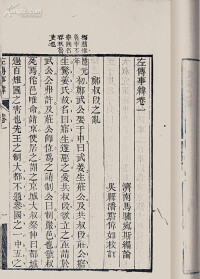 左傳事緯卷一
濟南馬驌宛斯編論
吳縣潘霨偉如校訂
鄭叔段之亂
初鄭武公娶于申曰武姜生莊公及共叔段莊公寤
生驚姜氏故名曰寤生遂惡之愛共叔段欲立之亟請於
武公公弗許及莊公卽位爲之請制公曰制嚴邑也虢叔
死焉佗邑唯命請京使居之謂之京城大叔祭仲曰都城
過百雉國之害也先王之制大都不過參國之一中五之
左傳事緯 卷一